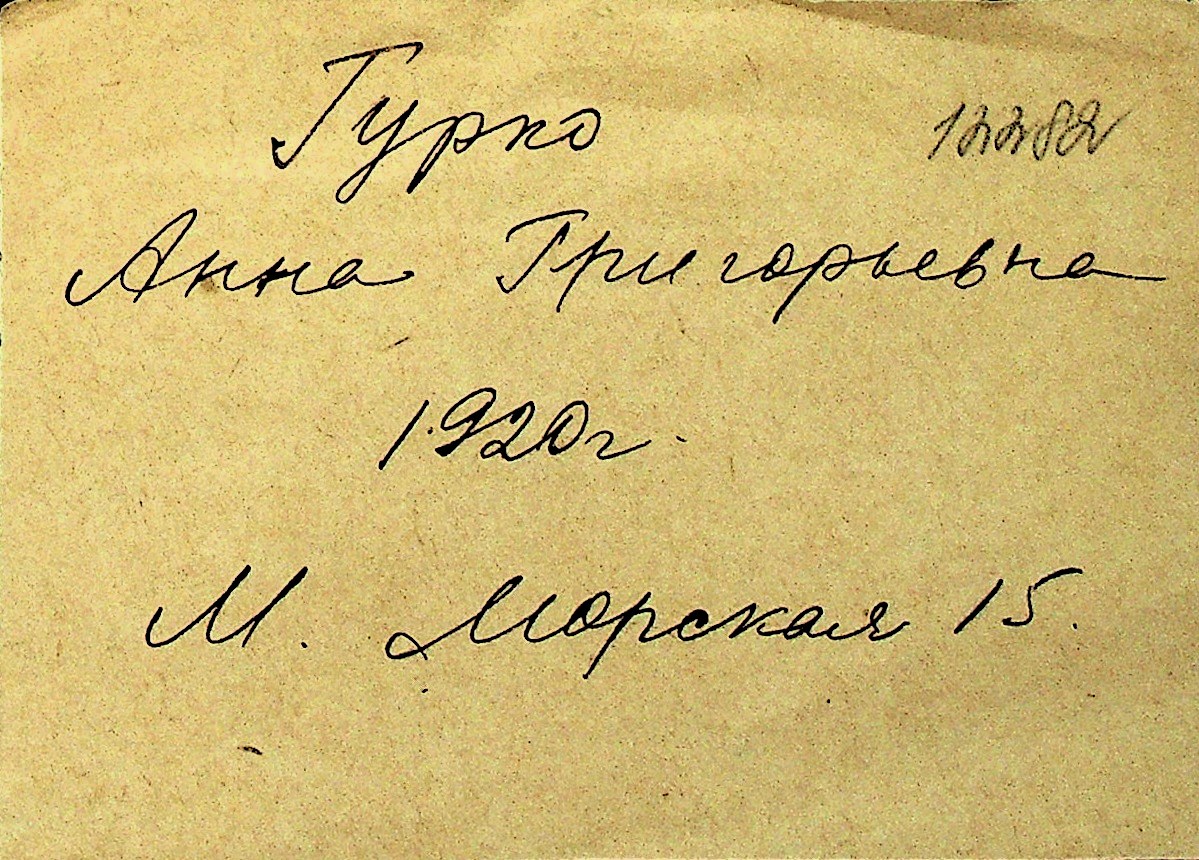 Гурко 12282
Анна Григорьевна
1920г.
М. Морская 15.